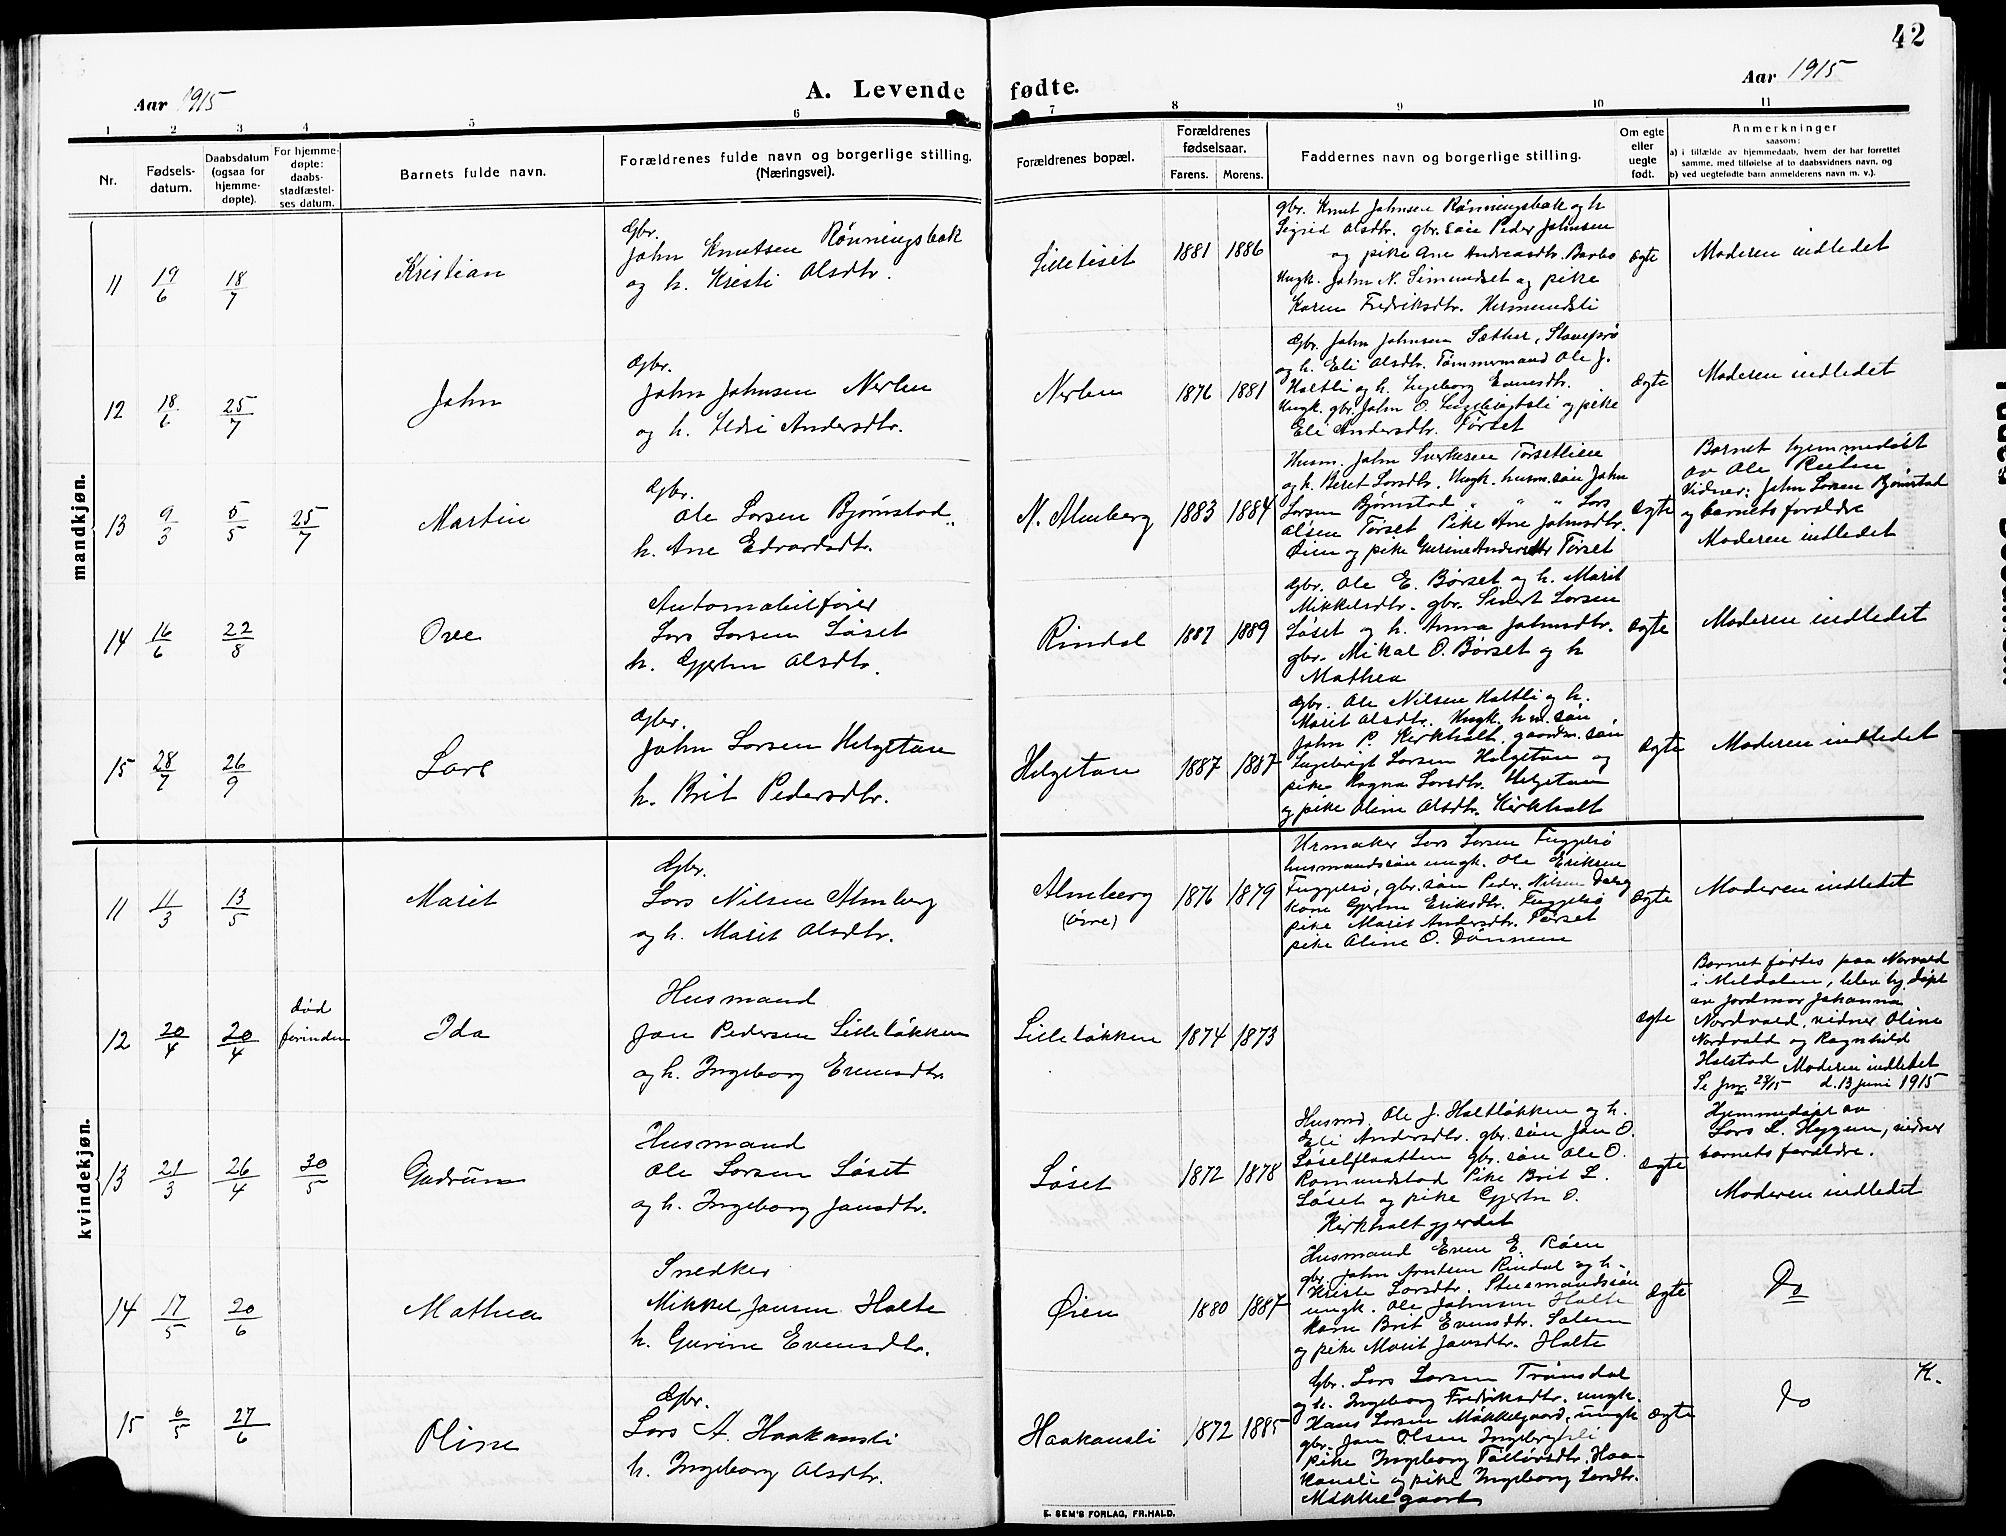 42
Aar 1915
A. Levende fødte.
Aar 1915
1 2 3 4 5 6 7 8 9 10 11
Nr.
Fødsels-
datum.
Daabsdatum
(ogsaa for
hjemme-
døpte).
For hjemme-
døpte:
daabs-
stadfæstel-
ses datum.
Barnets fulde navn.
Forældrenes fulde navn og borgerlige stilling.
(Næringsvei).
Forældrenes bopæl.
Forældrenes
fødselsaar.
Farens. Morens.
Faddernes navn og borgerlige stilling.
Om egte
eller
uegte
født.
Anmerkninger
saasom:
a) i tilfælde av hjemmedaab, hvem der har forrettet
samme, med tilføielse af to daabsvidners navn, og
b) ved uegtefødte barn anmelderens navn m. v.).
mandkjøn.
11 19/6 18/7
Kristian
Gbr.
John Knutsen Rönningsbak
og h. Kristi Olsdtr.
Lilletiset
1881 1886
gbr. Knut Johnsen Rönningsbak og h
Sigrid Olsdtr. gbr. sön Peder Johnsen
og pike Ane Andreasdtr. Barbo
Ungk. John N. Simundset og pike
Karen Fredriksdtr. Hermundsli
ægte
Moderen indledet
12 18/6 25/7
John
Gbr.
John Johnsen Nerlen
og h. Ildri Andersdtr.
Nerlen
1876 1881
Gbr. John Johnsen Sæther,
og h. Eli Olsdtr. Tömmermand Ole J.
Holtli og h. Ingeborg Evensdtr.
Ungk. gbr. John O. Ingebrigtsli og pike
Eli Andersdtr. Törset
ægte
Moderen indledet
13 9/3 5/5 25/7
Martin
Gbr.
Ole Larsen Bjørnstad
h. Ane Edvardsdtr.
N. Almberg
1883 1884
Husm. John Sverkesen Törsetlien
og h. Beret Larsdtr. Ungk. husm. sön John
Larsen Bjørnstad " " " Lars
Olsen Törset Pike Ane Johnsdtr.
Öien og pike Gurine Andersdtr Törset
ægte
Barnet hjemmedöbt
av Ole Reelen
Vidner: John Larsen Bjørnstad
og barnets forældre
Moderen indledet
14 16/6 22/8
Ove
Automobilfører
Lars Larsen Löset
h. Gjertru Olsdtr.
Rindal
1887 1889
Gbr. Ole E. Børset og h. Marit
Mikkelsdtr. gbr. Sivert Larsen
Löset og h. Anna Johnsdtr.
gbr. Mikal O. Børset og h
Mathea
ægte
Moderen indledet
15 28/7 26/9
Lars
Gbr.
John Larsen Helgetun
h. Brit Pedersdtr.
Helgetun
1887 1887
Gbr. Ole Nilsen Holtli og h.
Marit Olsdtr. Ungk. hm. sön
John P. Kirkholt, gaardm. sön
Ingebrigt Larsen Helgetun og
pike Ragna Larsdtr. Helgetun
og pike Oline Olsdtr. Kirkholt
ægte
Moderen indledet
kvindekjøn.
11 11/3 13/5
Marit
Gbr.
Lars Nilsen Almberg
og h. Marit Olsdtr.
Almberg
(övre)
1876 1879
Urmaker Lars Larsen Fuggelsö
husmandssön ungk. Ole Eriksen
Fuggelsö, gbr. sön Peder Nilsen
kone Gjertru Eriksdtr. Fuggelsö
pike Marit Andersdtr. Törset
pike Oline O. Dönnem
ægte
Moderen indledet
12 20/4 20/4
död
forinden
Ida
Husmand
Jon Pedersen Lillelökken
og h. Ingeborg Evensdtr.
Lillelökken
1874 1873
ægte
Barnet födtes paa Norvald
i Meldalen, blev hj. döpt
av jordmor Johanna
Nordvald, vidner Oline
Nordvald og Ragnhild
Halstad Moderen indledet
Se jnr. 28/15 d. 13 juni 1915
13 21/3 26/4 30/5
Gudrun
Husmand
Ole Larsen Löset
og h. Ingeborg Jonsdtr.
Löset
1872 1878
Husmd. Ole J. Holtlökken og h.
Eli Andersdtr. gbr. sön Jon O.
Löselflaatten gbr. sön Ole O.
Romundstad Pike Brit L.
Löset og pike Gjertru O.
Kirkholtgjerdet
ægte
Hjemmedöpt av
Lars L. Heggem, vidner
barnets forældre.
Moderen indledet
14 17/5 20/6
Mathea
Snedker
Mikkel Jonsen Holte
h. Gurine Evensdtr.
Øien
1880 1887
Husmand Even E. Röen
gbr. John Arntsen Rindal og h.
Kristi Larsdtr. Husmandssön
ungk. Ole Johnsen Holte
Kone Brit Evensdtr. Salem
og pike Marit Jonsdtr. Holte
ægte
Do
15 6/5 27/6
Oline
Gbr.
Lars A. Haakansli
h. Ingeborg Olsdtr.
Haakansli
1872 1885
Gbr. Lars Larsen Trönsdal
og h. Ingeborg Fredriksdtr. ungk.
Hans Larsen Mikkelgaard, ungk
gbr. Jon Olsen Ingebrigtsli
pike Ingeborg Tollövsdtr. Haa-
kansli og pike Ingeborg Larsdtr.
Mikkelgaard
ægte
Do
K.
E. SEM'S FORLAG, FR.HALD.